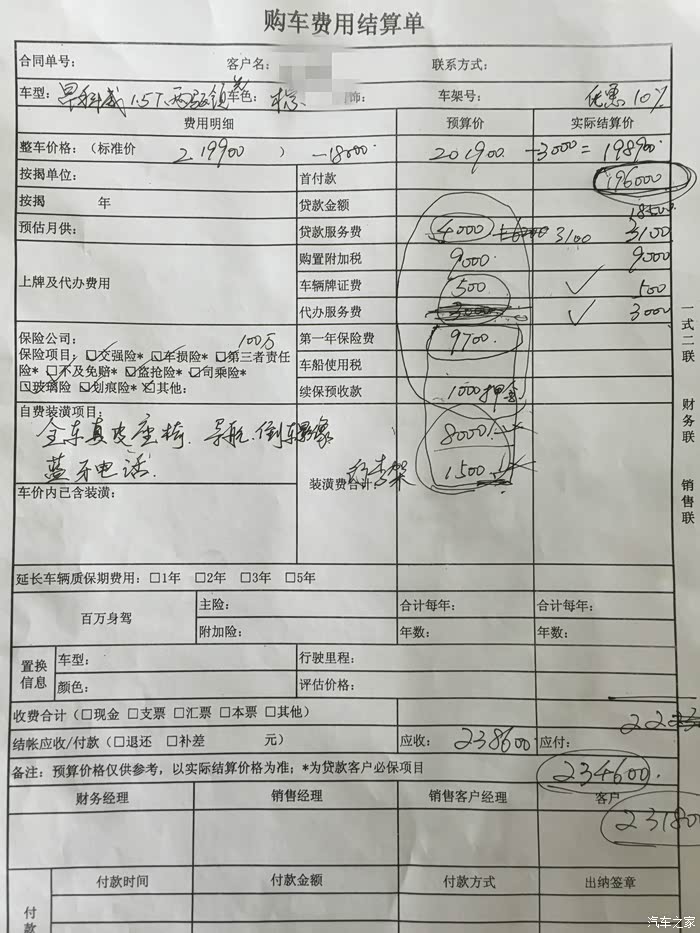 购车费用结算单
合同单号： 客户名： 联系方式：
车型：昂科威1.5T 两驱领先 车色：棕 饰： 车架号： 优惠10%
费用明细 预算价 实际结算价
整车价格：（标准价 219900 ） -18000. 201900 -3000 = 198900
按揭单位： 首付款 196000
按揭 年 贷款金额 18500
预估月供： 贷款服务费 4000 3100 3100
上牌及代办费用 购置附加税 9000. 9000
车辆牌证费 500 ✓ 500
代办服务费 3000 ✓ 3000
保险公司： 100万 第一年保险费 9700.
保险项目：☑交强险* ☑车损险* ☑第三者责任
险* ☑不及免赔* ☑盗抢险* ☑司乘险*
☑玻璃险 ☑划痕险* ☑其他：
车船使用税
续保预收款 1000押金
自费装潢项目：
全车真皮座椅. 导航.倒车影像 8000
蓝牙电话. 行李架 1500
车价内已含装潢： 装潢费合计：
延长车辆质保期费用：□1年 □2年 □3年 □5年
百万身驾 主险： 合计每年： 合计每年：
附加险： 年数： 年数：
置换信息 车型： 行驶里程：
颜色： 评估价格：
收费合计（□现金 □支票 □汇票 □本票 □其他）
结帐应收/付款（□退还 □补差 元） 应收：238600 应付：
备注：预算价格仅供参考，以实际结算价格为准；*为贷款客户必保项目 234600.
财务经理 销售经理 销售客户经理 客户
23180
付款时间 付款金额 付款方式 出纳签章
付款
一式二联 财务联 销售联
汽车之家